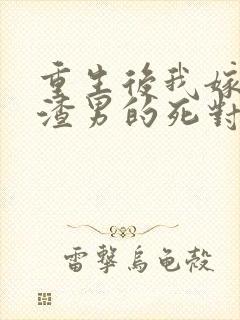 重生後我嫁
渣男的死對
雷擊烏龜殼